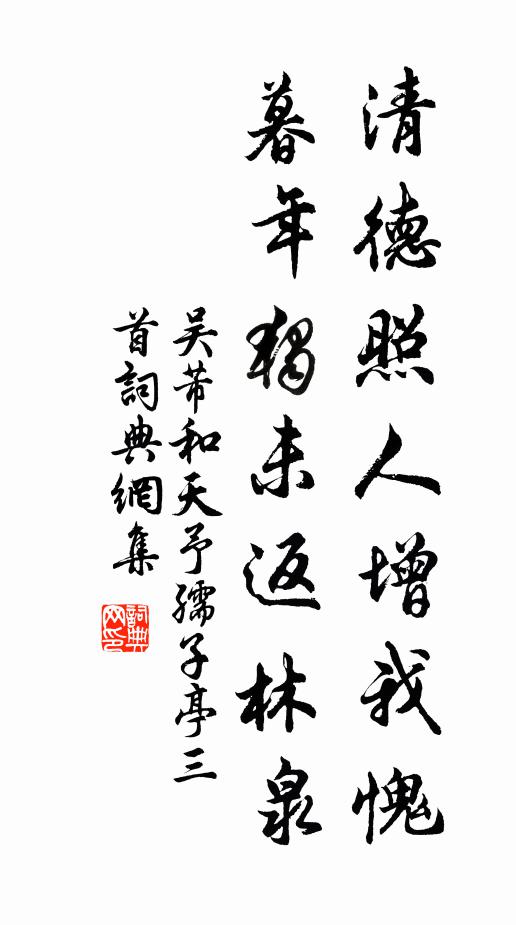 清德照人增我愧
暮年獨未返林泉
吴芾和天予孺子亭三
首詞典網集
詞典網印